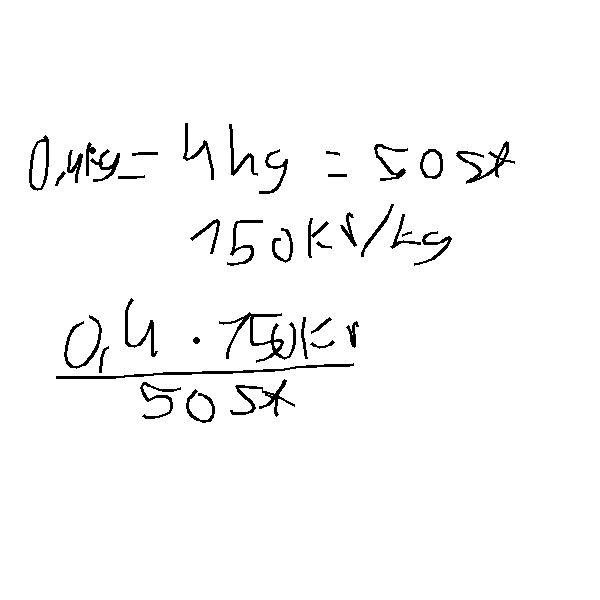 0,4kg = 4hg = 50 st
150kr/kg
0,4 · 150kr
50 st